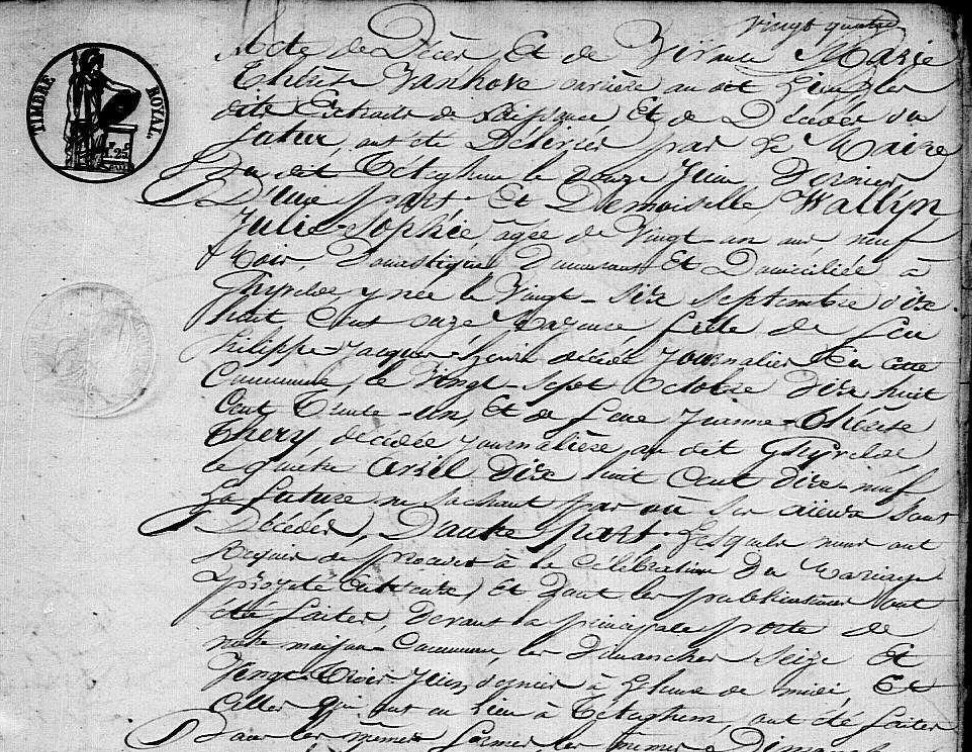 vingt quatre
TIMBRE ROYAL
25
Acte de Décès Et de Vivante Marie
Thérèse Vanhove ouvrière au dit
dits Extraits de Naissance Et de Décédés du
futur, ont été Délivrés par le Maire
Du dit Tétéghem le onze Juin Dernier
D'une part. Et Demoiselle, Wallyn
Julie-Sophie, agée de Vingt-un ans neuf
Mois, Domestique, Demeurant Et Domiciliée à
Ghyvelde, y née le Vingt-Six Septembre dix
huit Cent onze Majeure fille de feu
Philippe-Jacques-Louis décédé Journalier En cette
Commune, le Vingt-Sept Octobre Dix huit
Cent Trente-un, Et de feue Jeanne-Thérèse
Thery décédée Journalière au dit Ghyvelde
le quatre Avril Dix huit Cent Dix-neuf
La future ne sachant pas où ses aieux sont
Décédés, D'autre part. Lesquels nous ont
Requis de procéder à la Célébration Du Mariage
projeté entr'eux, Et Dont les publications ont
été faites, Devant la principale porte de
notre maison-Commune, les Dimanches Seize Et
Vingt-Trois Juin, dernier à l'heure de midi, Et
Celles qui ont eu lieu à Tétéghem, ont été faites
Dans les mêmes formes les mêmes